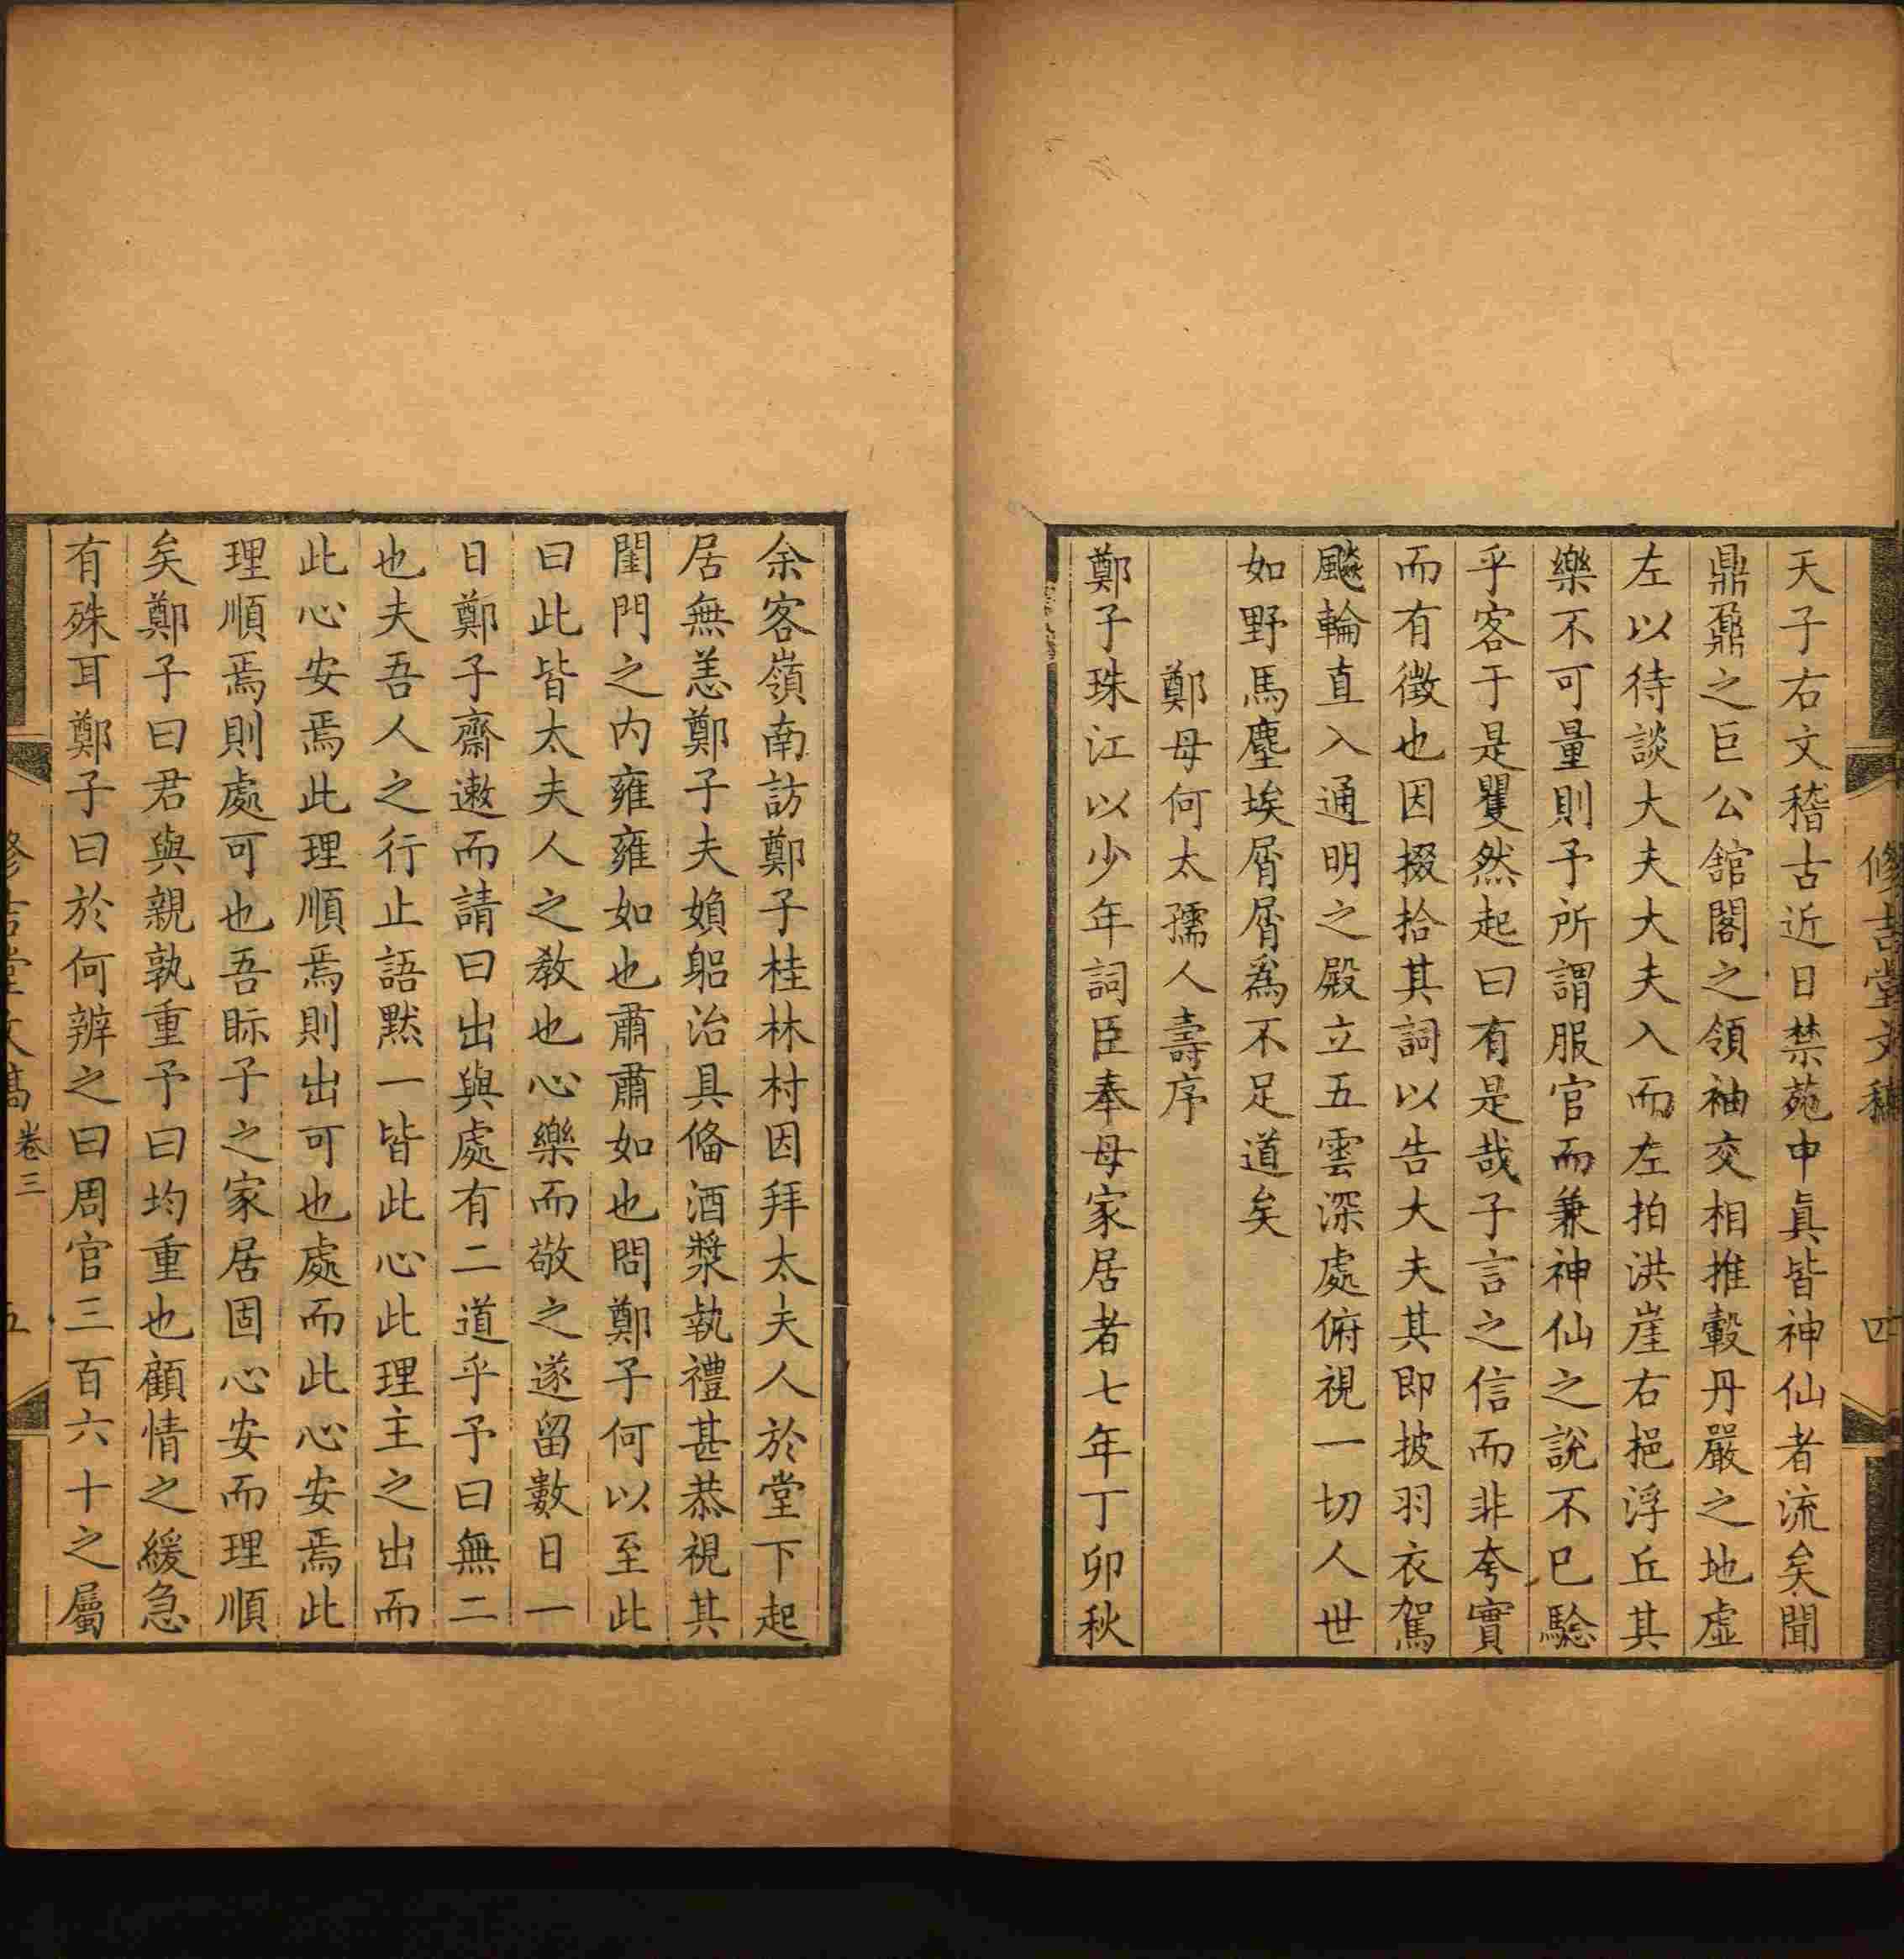 修吉堂文稿
四
天子右文稽古近日禁苑申眞皆神仙者流矣聞
鼎鼐之巨公舘閣之領袖交相推轂丹嚴之地虛
左以待談大夫大夫入而左拍洪崖右挹浮丘其
樂不可量則予所謂服官而兼神仙之說不已驗
乎客于是瞿然起曰有是哉子言之信而非夸實
而有徴也因掇拾其詞以告大夫其即披羽衣駕
飈輪直入通明之殿立五雲深處俯視一切人世
如野馬塵埃屑屑爲不足道矣
鄭母何太孺人壽序
鄭子珠江以少年詞臣奉母家居者七年丁卯秋
余客嶺南訪鄭子桂林村因拜太夫人於堂下起
居無恙鄭子夫嬪躬治具俻酒漿執禮甚恭視其
閨門之内雍雍如也肅肅如也問鄭子何以至此
曰此皆太夫人之教也心樂而敬之遂留數日一
日鄭子齋遬而請曰出與處有二道乎予曰無二
也夫吾人之行止語黙一皆此心此理主之出而
此心安焉此理順焉則出可也處而此心安焉此
理順焉則處可也吾眎子之家居固心安而理順
矣鄭子曰君與親孰重予曰均重也顧情之緩急
有殊耳鄭子曰於何辨之曰周官三百六十之屬
修吉堂文稿
卷三
五